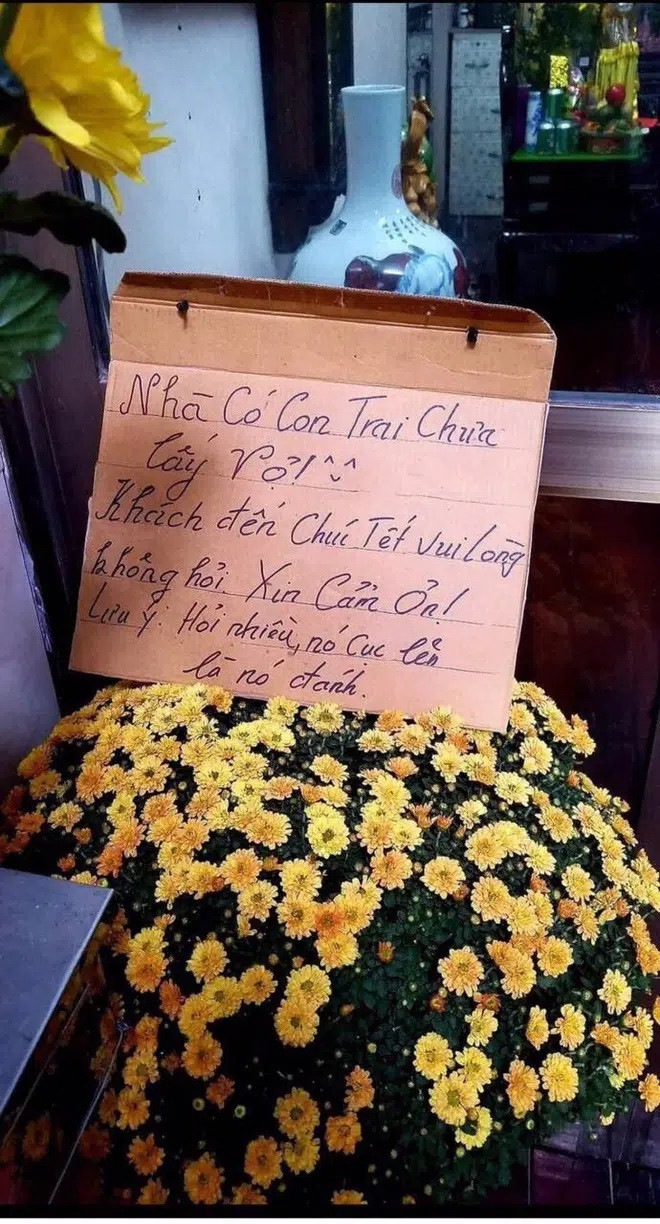 Nhà Có Con Trai Chưa
lấy Vợ! ^^
Khách đến Chúc Tết vui lòng
không hỏi. Xin Cảm Ơn!
Lưu ý: Hỏi nhiều, nó Cục lên
là nó đánh.